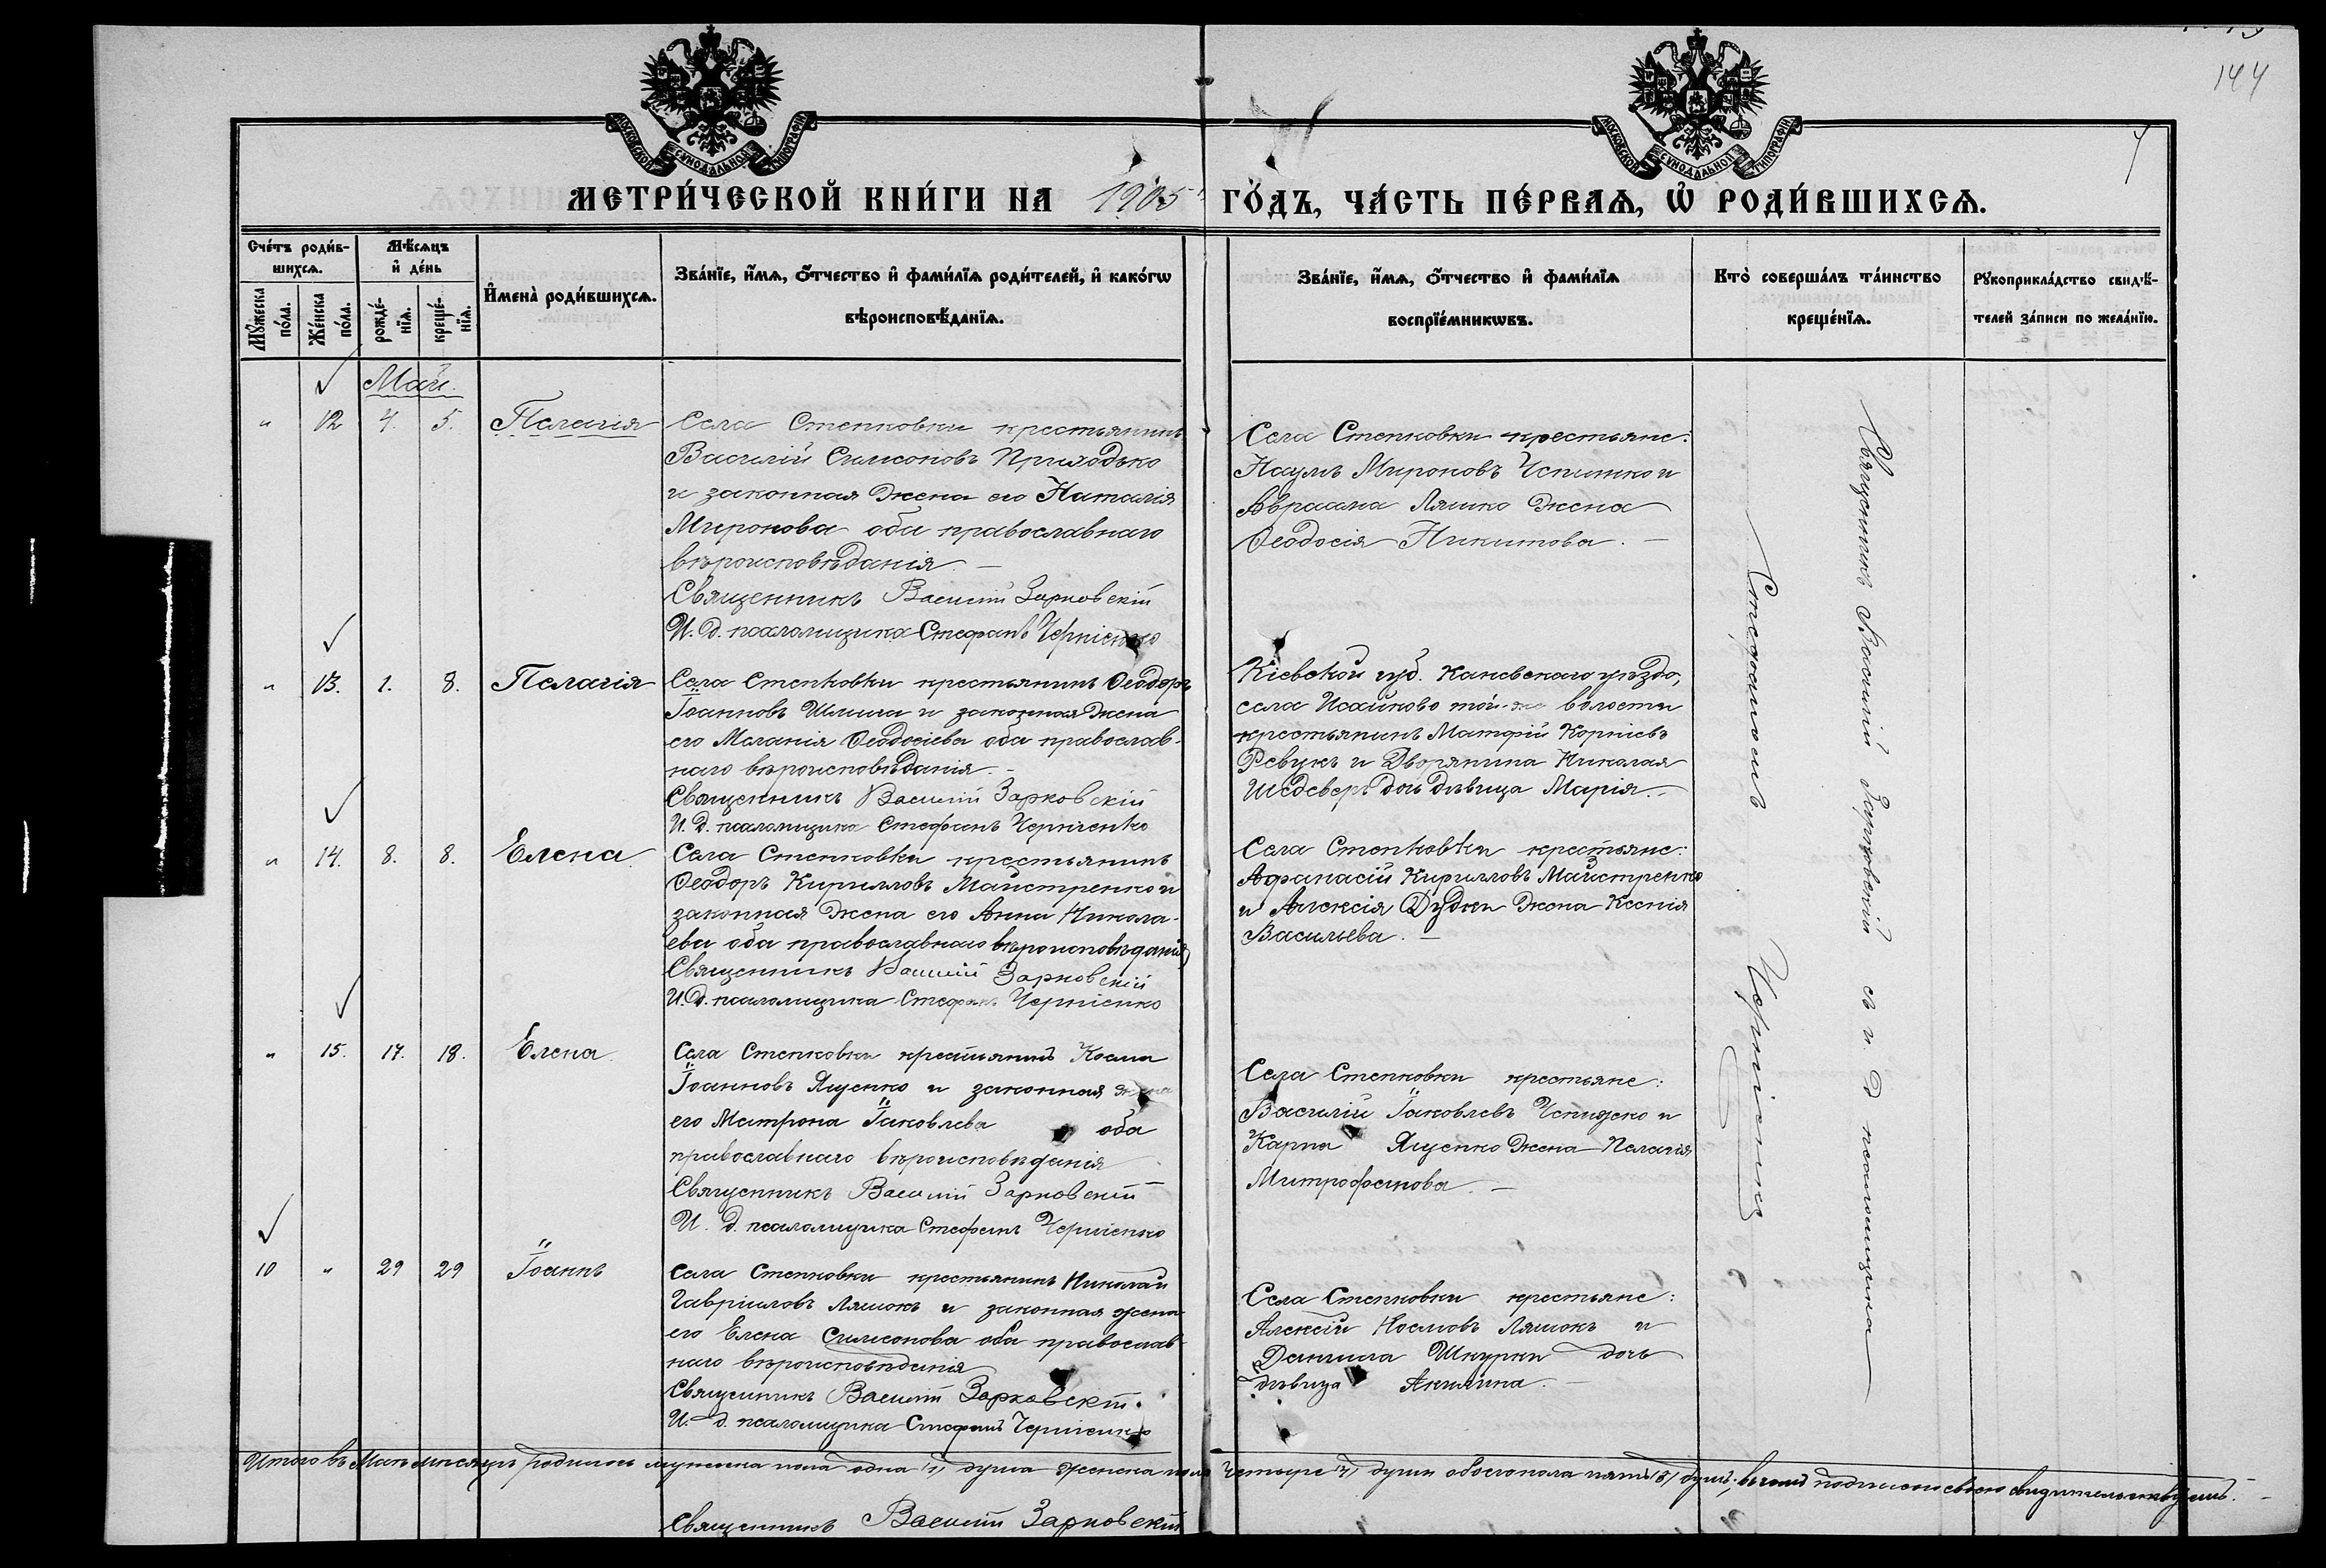 144
7
МОСКОВСКОЙ СѴНОДАЛЬНОЙ ТИПОГРАФІИ
МОСКОВСКОЙ СѴНОДАЛЬНОЙ ТИПОГРАФІИ
МЕТРИ́ЧЕСКОЙ КНИ́ГИ НА 1905 ГО́ДЪ, ЧА́СТЬ ПЕ́РВАѦ, Ѡ РОДИ́ВШИХСѦ.
Сче́тъ роди́в-
шихсѧ.
Мѣ́сѧцъ
и҆ де́нь
Мꙋ́жеска
по́ла.
Же́нска
по́ла.
рожде́-
нїѧ.
креще́-
нїѧ.
И҆мена̀ роди́вшихсѧ.
Зва́нїе, и҆́мѧ, ѻ҆́тчество и҆ фами́лїѧ роди́телей, и҆ како́гѡ
вѣроисповѣ́данїѧ.
Зва́нїе, и҆́мѧ, ѻ҆́тчество и҆ фами́лїѧ
воспрїе́мникѡвъ.
Кто̀ соверша́лъ та́инство
креще́нїѧ.
Рꙋкоприкла́дство свидѣ́-
телей за́писи по жела́нїю.
Май.
" 12 4. 5. Пелагія
Села Степковки крестьянинъ
Василій Симсоновъ Приходько
и законная жена его Наталія
Миронова оба православнаго
вѣроисповѣданія. —
Священникъ Василій Зарковскій
И. д. псаломщика Стефанъ Черніенко
Села Степковки крестьяне:
Наумъ Мироновъ и
Авраама Ляшко жена
Ѳеодосія Никитова. —
" 13. 1. 8. Пелагія
Села Степковки крестьянинъ Ѳеодоръ
Іоанновъ и законная жена
его Меланія Ѳеодосіева оба православ-
наго вѣроисповѣданія. —
Священникъ Василій Зарковскій
И. д. псаломщика Стефанъ Черніенко
Кіевской губ. Каневскаго уѣзда,
села той-же волости
крестьянинъ Матфій Корніевъ
Ревукъ и Дворянина Николая
дочь дѣвица Марія. —
" 14. 8. 8. Елена
Села Степковки крестьянинъ
Ѳеодоръ Кирилловъ Майстренко и
законная жена его Анна Никола-
ева оба православнаго вѣроисповѣданія
Священникъ Василій Зарковскій
И. д. псаломщика Стефанъ Черніенко
Села Степковки крестьяне:
Афанасій Кирилловъ Майстренко
и Алексія Дудки жена Ксенія
Васильева. —
" 15. 17. 18. Елена
Села Степковки крестьянинъ Косма
Іоанновъ Ященко и законная жена
его Матрона Іаковлева оба
православнаго вѣроисповѣданія
Священникъ Василій Зарковскій
И. д. псаломщика Стефанъ Черніенко
Села Степковки крестьяне:
Василій Іаковлевъ и
Карпа Ященко жена Пелагія
Митрофанова. —
10 " 29 29 Іоаннъ
Села Степковки крестьянинъ Николай
Гавріиловъ Ляшокъ и законная жена
его Елена Симсонова оба православ-
наго вѣроисповѣданія
Священникъ Василій Зарковскій.
И. д. псаломщика Стефанъ Черніенко
Села Степковки крестьяне:
Алексій Космовъ Ляшокъ и
Даніила Шкурки дочь
дѣвица Акилина. —
Священникъ Василій Зарковскій съ и. д. псаломщика
Стефаномъ Черніенко
Итого въ Маѣ мѣсяцѣ родилось мужеска пола одна (1) душа женска пола четыре (4) души обоего пола пять (5) душъ; въ чемъ подписью своею свидѣтельствуемъ. —
Священникъ Василій Зарковскій